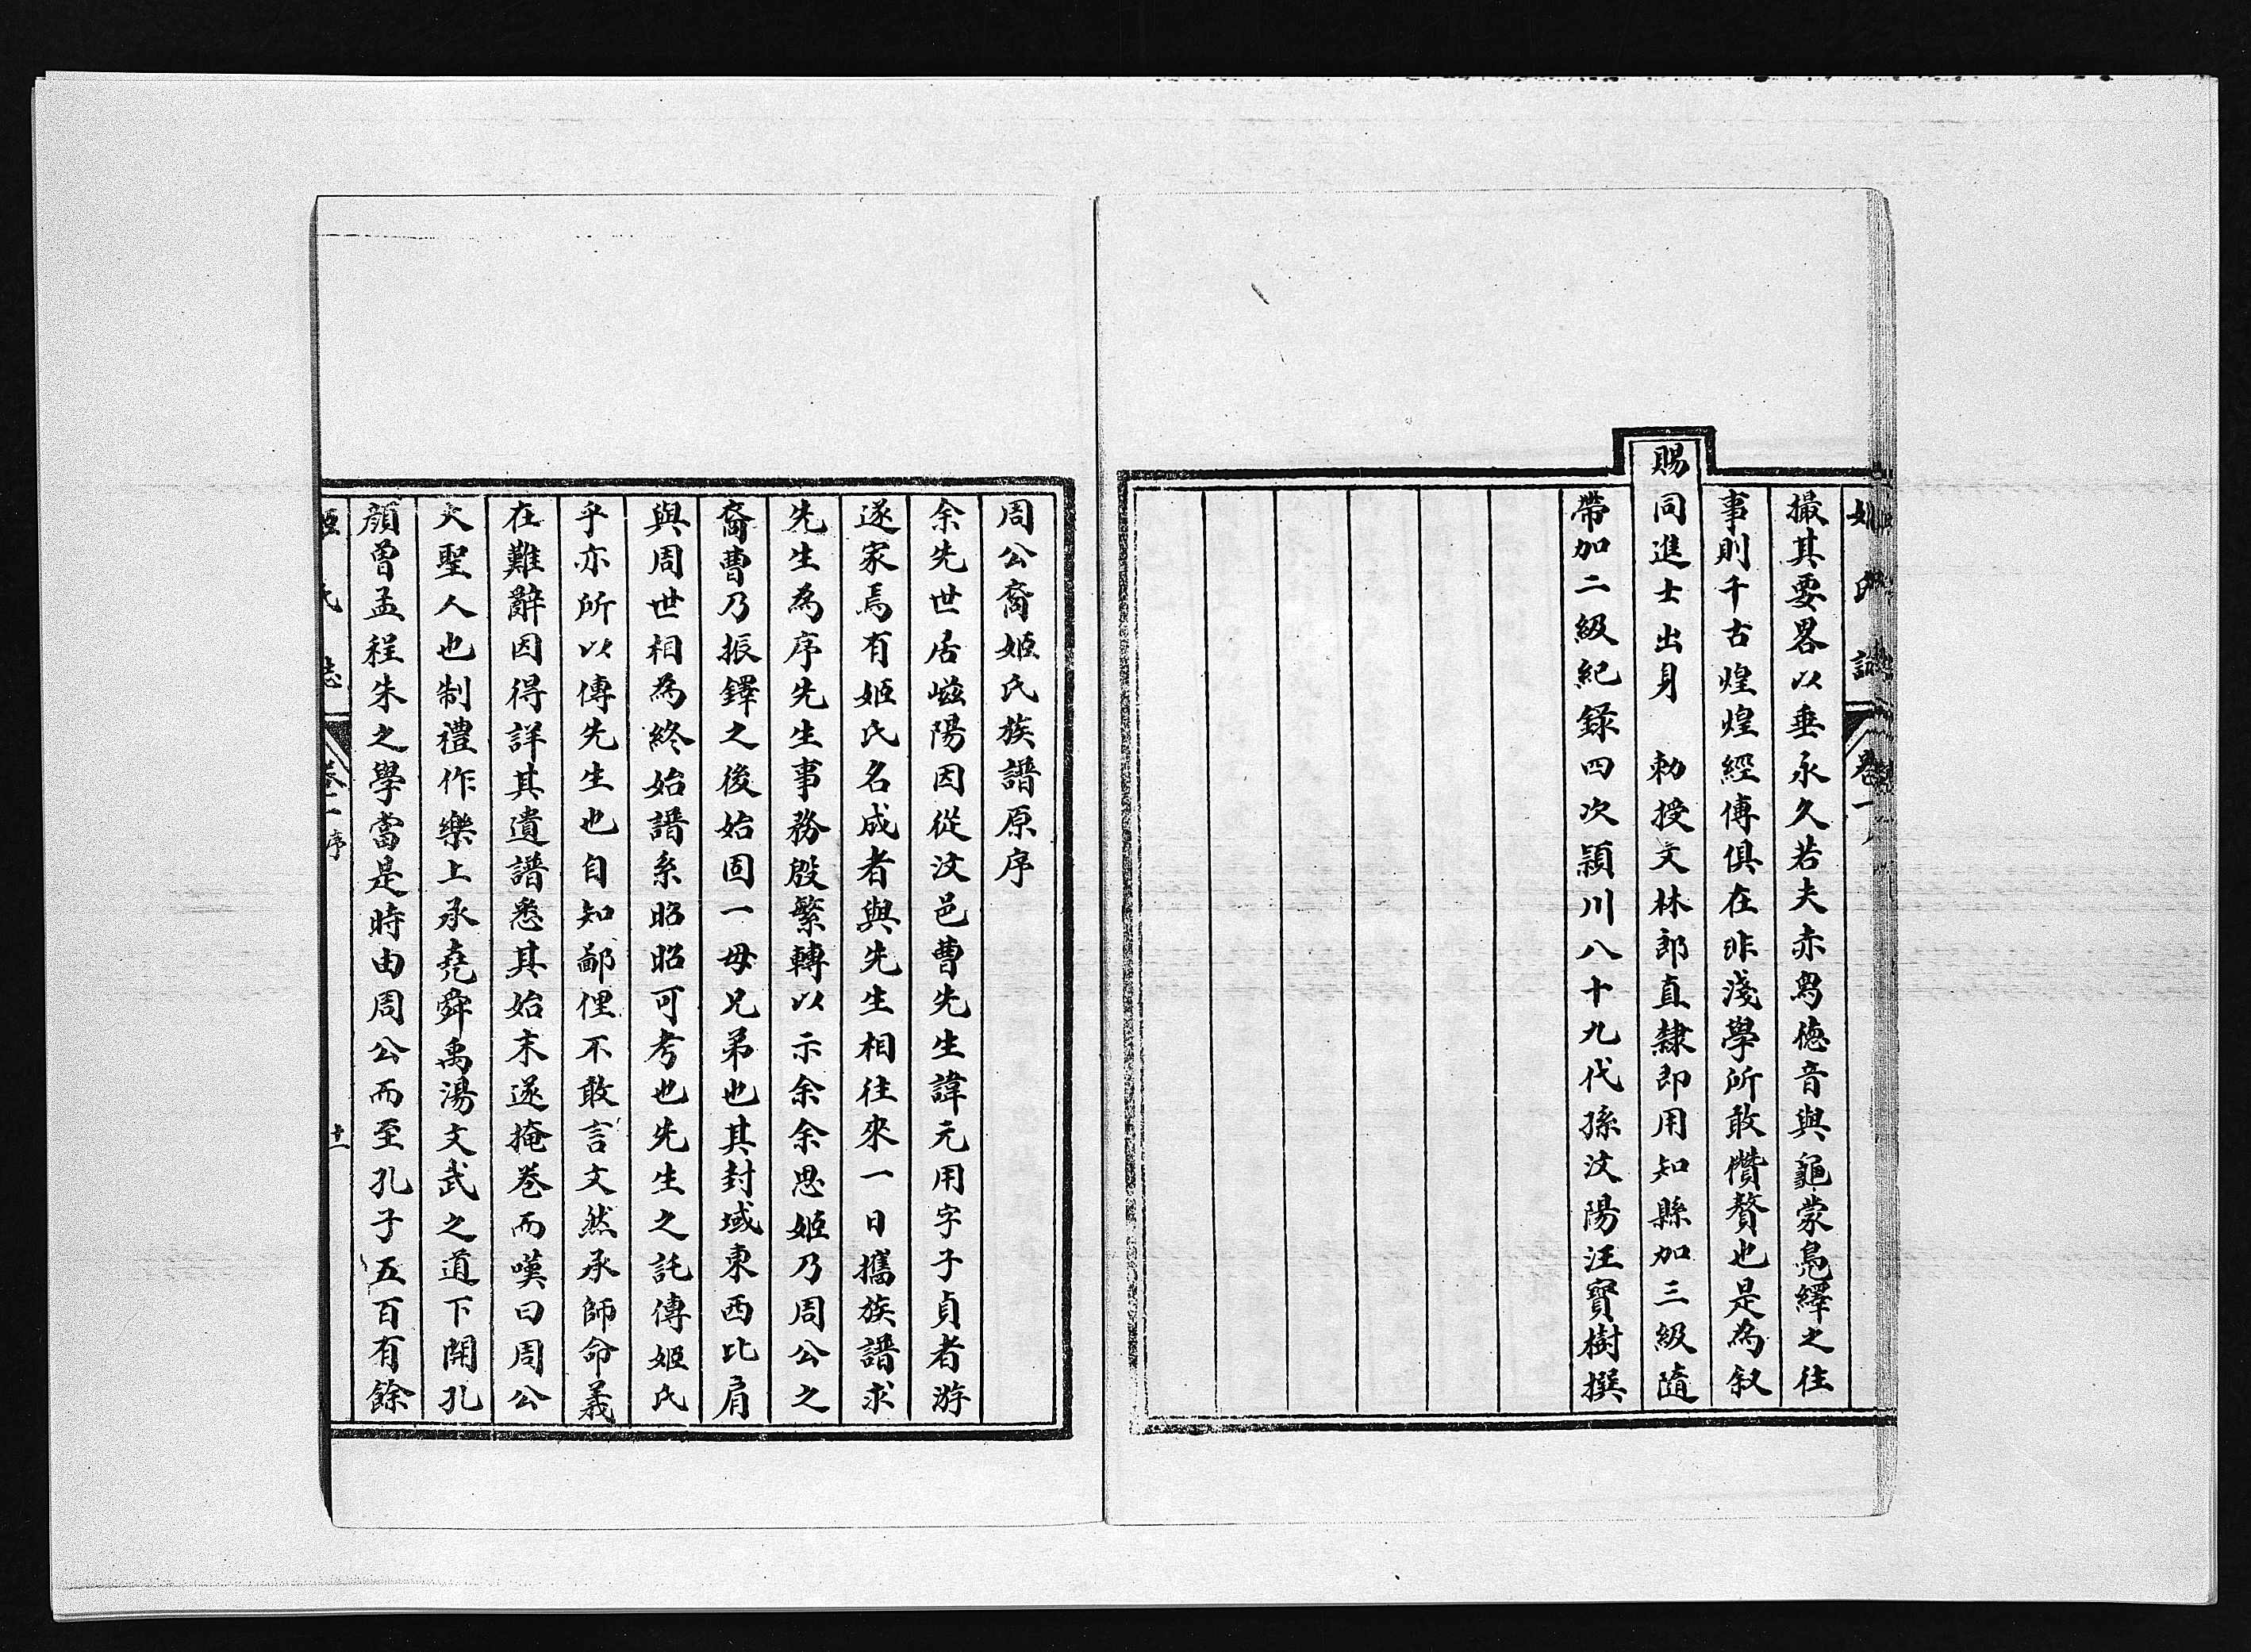 姬氏誌 卷一
撮其要畧以垂永久若夫赤舄德音與龜蒙鳧繹之往
事則千古煌煌經傳俱在非淺學所敢儹贅也是為叙
賜同進士出身 勅授文林郎直隸即用知縣加三級隨
帶加二級紀錄四次潁川八十九代孫汶陽汪寶樹撰
周公裔姬氏族譜原序
余先世居嵫陽因從汶邑曹先生諱元用字子貞者游
遂家焉有姬氏名成者與先生相往來一日攜族譜求
先生為序先生事務殷繁轉以示余余思姬乃周公之
裔曹乃振鐸之後始固一母兄弟也其封域東西比肩
與周世相為終始譜系昭昭可考也先生之託傳姬氏
乎亦所以傳先生也自知鄙俚不敢言文然承師命義
在難辭因得詳其遺譜悉其始末遂掩卷而嘆曰周公
大聖人也制禮作樂上承堯舜禹湯文武之道下開孔
顏曾孟程朱之學當是時由周公而至孔子五百有餘
姬氏誌 卷一 序 十一